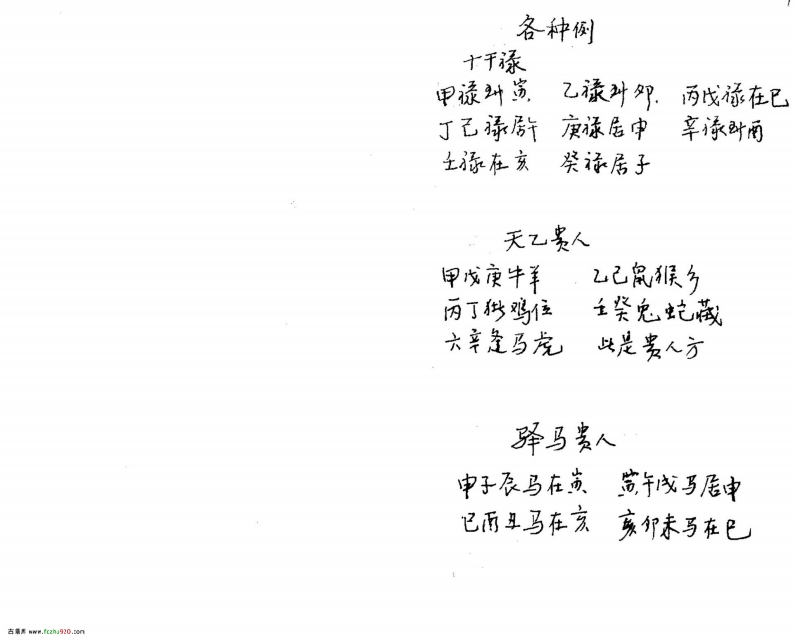 各种例
十干禄
甲禄到寅 乙禄到卯. 丙戊禄在巳
丁己禄居午 庚禄居申 辛禄到酉
壬禄在亥 癸禄居子
天乙贵人
甲戊庚牛羊 乙己鼠猴乡
丙丁猪鸡位 壬癸兔蛇藏
六辛逢马虎 此是贵人方
驿马贵人
申子辰马在寅 寅午戌马居申
巳酉丑马在亥 亥卯未马在巳
www.fczhu920.com